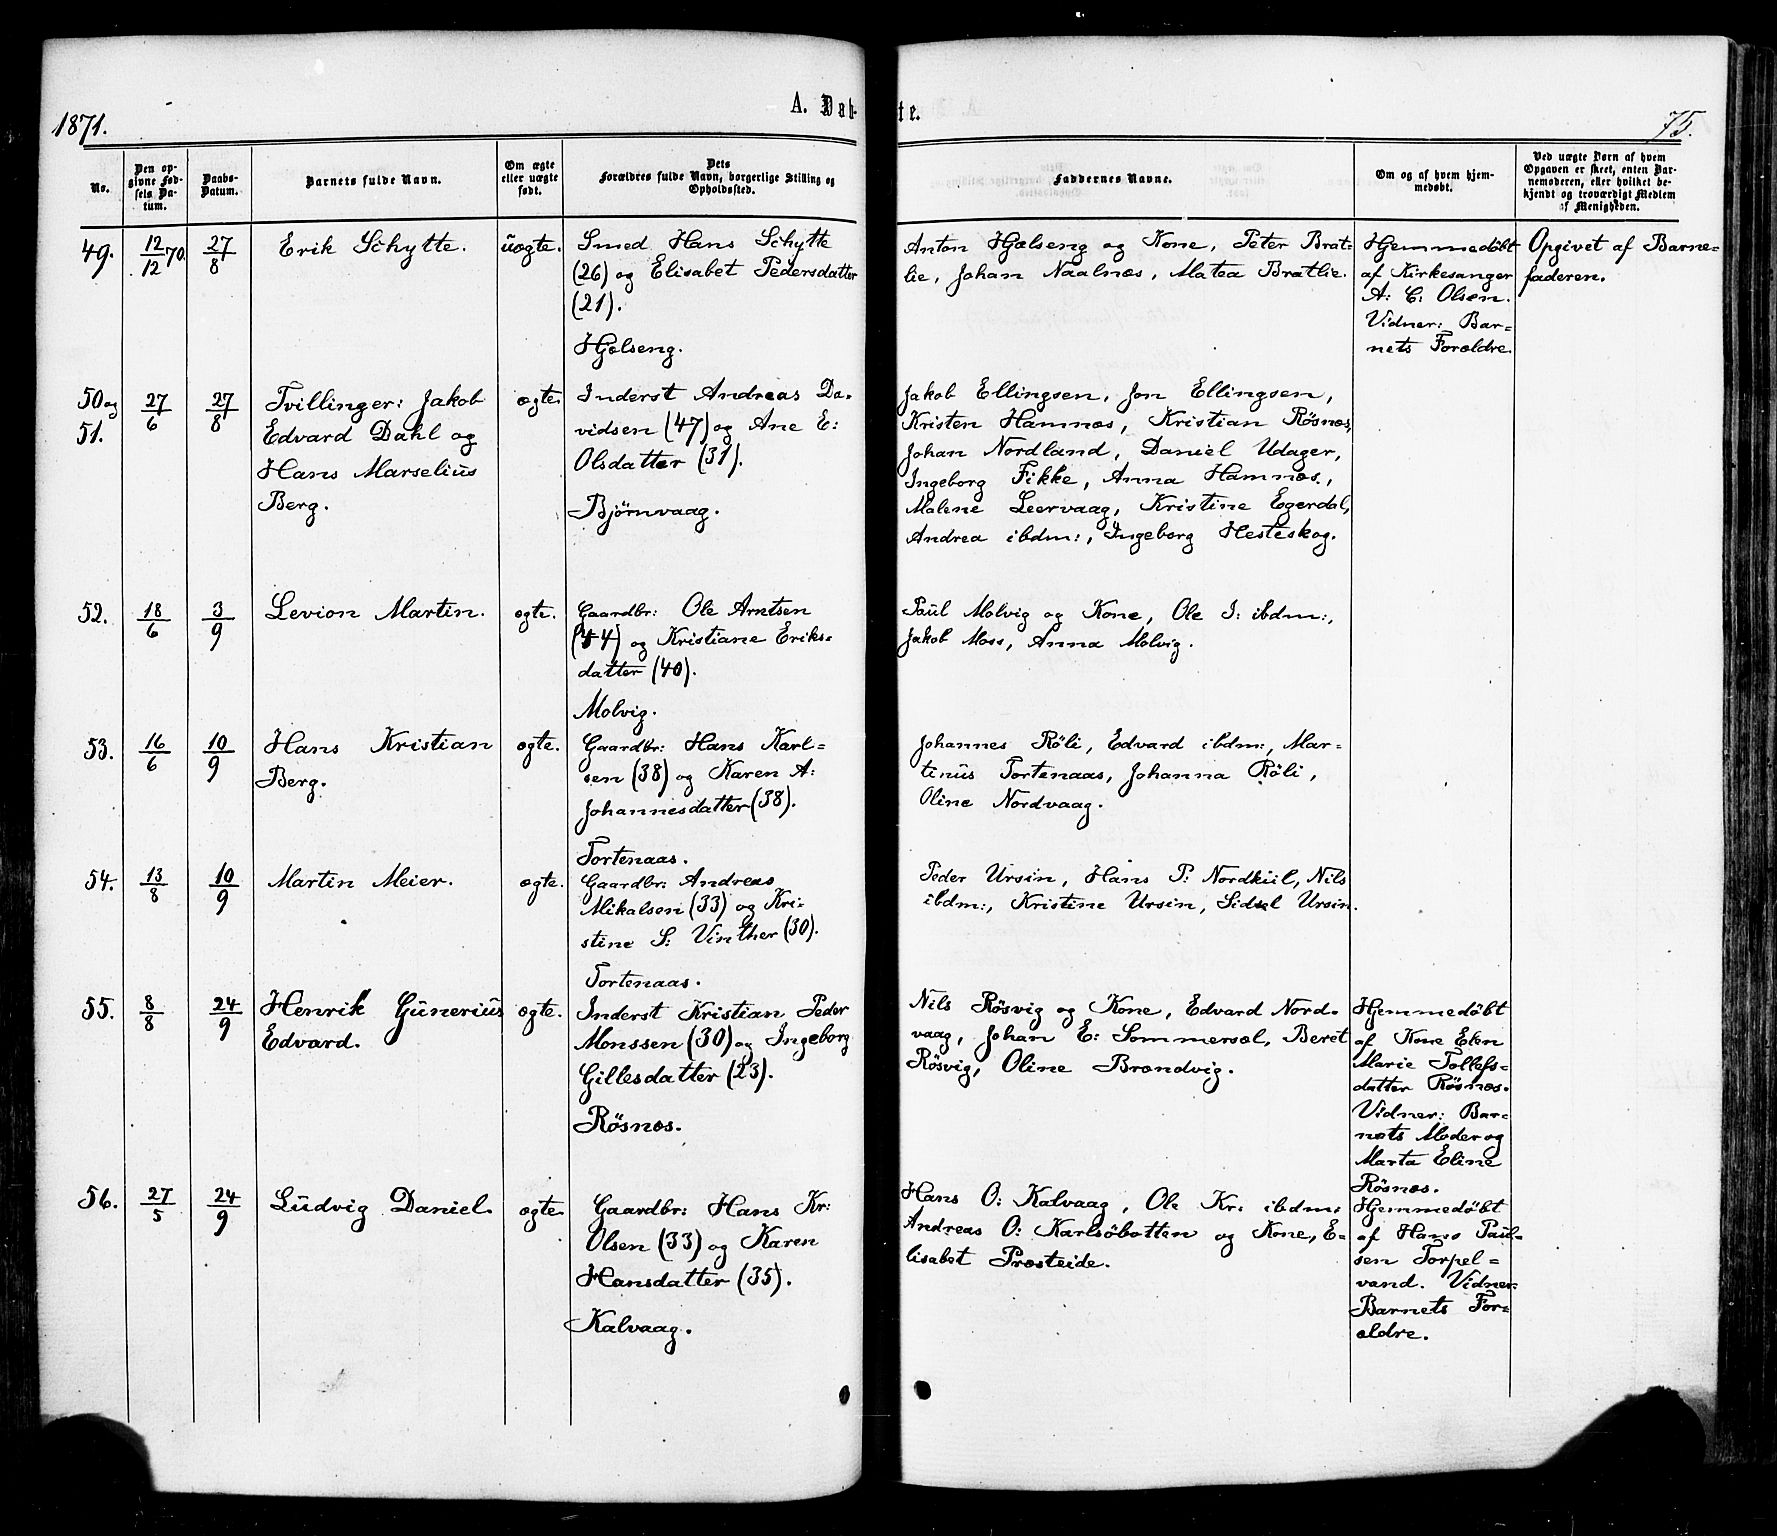 1871.
A. Døb-
te.
75.
No.
Den op-
givne Fød-
sels Da-
tum.
Daabs-
Datum.
Barnets fulde Navn.
Om ægte
eller uægte
født.
Dets
Forældres fulde Navn, borgerlige Stilling og
Opholdssted.
Faddernes Navne.
Om og af hvem hjem-
medøbt.
Ved uægte Børn af hvem
Opgaven er skeet, enten Bar-
nemoderen, eller hvilket be-
kjendt og troværdigt Medlem
af Menigheden.
49.
12/12 70.
27/8
Erik Schytte.
uægte.
Smed Hans Schytte
(26) og Elisabet Pedersdatter
(21).
Hjelseng.
Anton Hjælseng og Kone, Peter Brat-
lie, Johan Naalnæs, Matea Bratlie.
Hjemmedøbt
af Kirkesanger
A: C: Olsen.
Vidner: Bar-
nets Forældre.
Opgivet af Barne-
faderen.
50 og
51.
27/6
27/8
Tvillinger: Jakob
Edvard Dahl og
Hans Marselius
Berg.
ægte.
Inderst Andreas Da-
vidsen (47) og Ane E:
Olsdatter (31).
Bjørnvaag.
Jakob Ellingsen, Jon Ellingsen,
Kristen Hamnæs, Kristian Røsnæs,
Johan Nordland, Daniel Udager,
Ingeborg Fikke, Anna Hamnæs,
Malene Leervaag, Kristine Egerdal,
Andrea ibdm:, Ingeborg Hesteskog.
52.
18/6
3/9
Levion Martin.
ægte.
Gaardbr: Ole Arntsen
(44) og Kristiane Eriks-
datter (40).
Molvig.
Paul Molvig og Kone, Ole I: ibdm:,
Jakob Moss, Anna Molvig.
53.
16/6
10/9
Hans Kristian
Berg.
ægte.
Gaardbr: Hans Karl-
sen (38) og Karen A:
Johannesdatter (38).
Tortenaas.
Johannes Røli, Edvard ibdm:, Mar-
tinus Tortenaas, Johanna Røli,
Oline Nordvaag.
54.
13/8
10/9
Martin Meier.
ægte.
Gaardbr: Andreas
Mikalsen (33) og Kri-
stine S: Vinther (30).
Tortenaas.
Peder Ursin, Hans P: Nordkiil, Nils
ibdm:, Kristine Ursin, Sidsel Ursin.
55.
8/8
24/9
Henrik Gunerius
Edvard.
ægte.
Inderst Kristian Peder
Monssen (30) og Ingeborg
Gillesdatter (23).
Røsnæs.
Nils Røsvig og Kone, Edvard Nord-
vaag, Johan E: Sommersæl, Beret
Røsvig, Oline Brændvig.
Hjemmedøbt
af Kone Elen
Marie Tollefs-
datter Røsnæs.
Vidner: Bar-
nets Moder og
Marta Eline
Røsnæs.
56.
27/5
24/9
Ludvig Daniel.
ægte.
Gaardbr: Hans Kr:
Olsen (33) og Karen
Hansdatter (35).
Kalvaag.
Hans O: Kalvaag, Ole Kr: ibdm:
Andreas O: Karlsøbotten og Kone, E-
lisabet Prosteide.
Hjemmedøbt
af Hans Paul-
sen Torpel-
vand. Vidner:
Barnets For-
ældre.